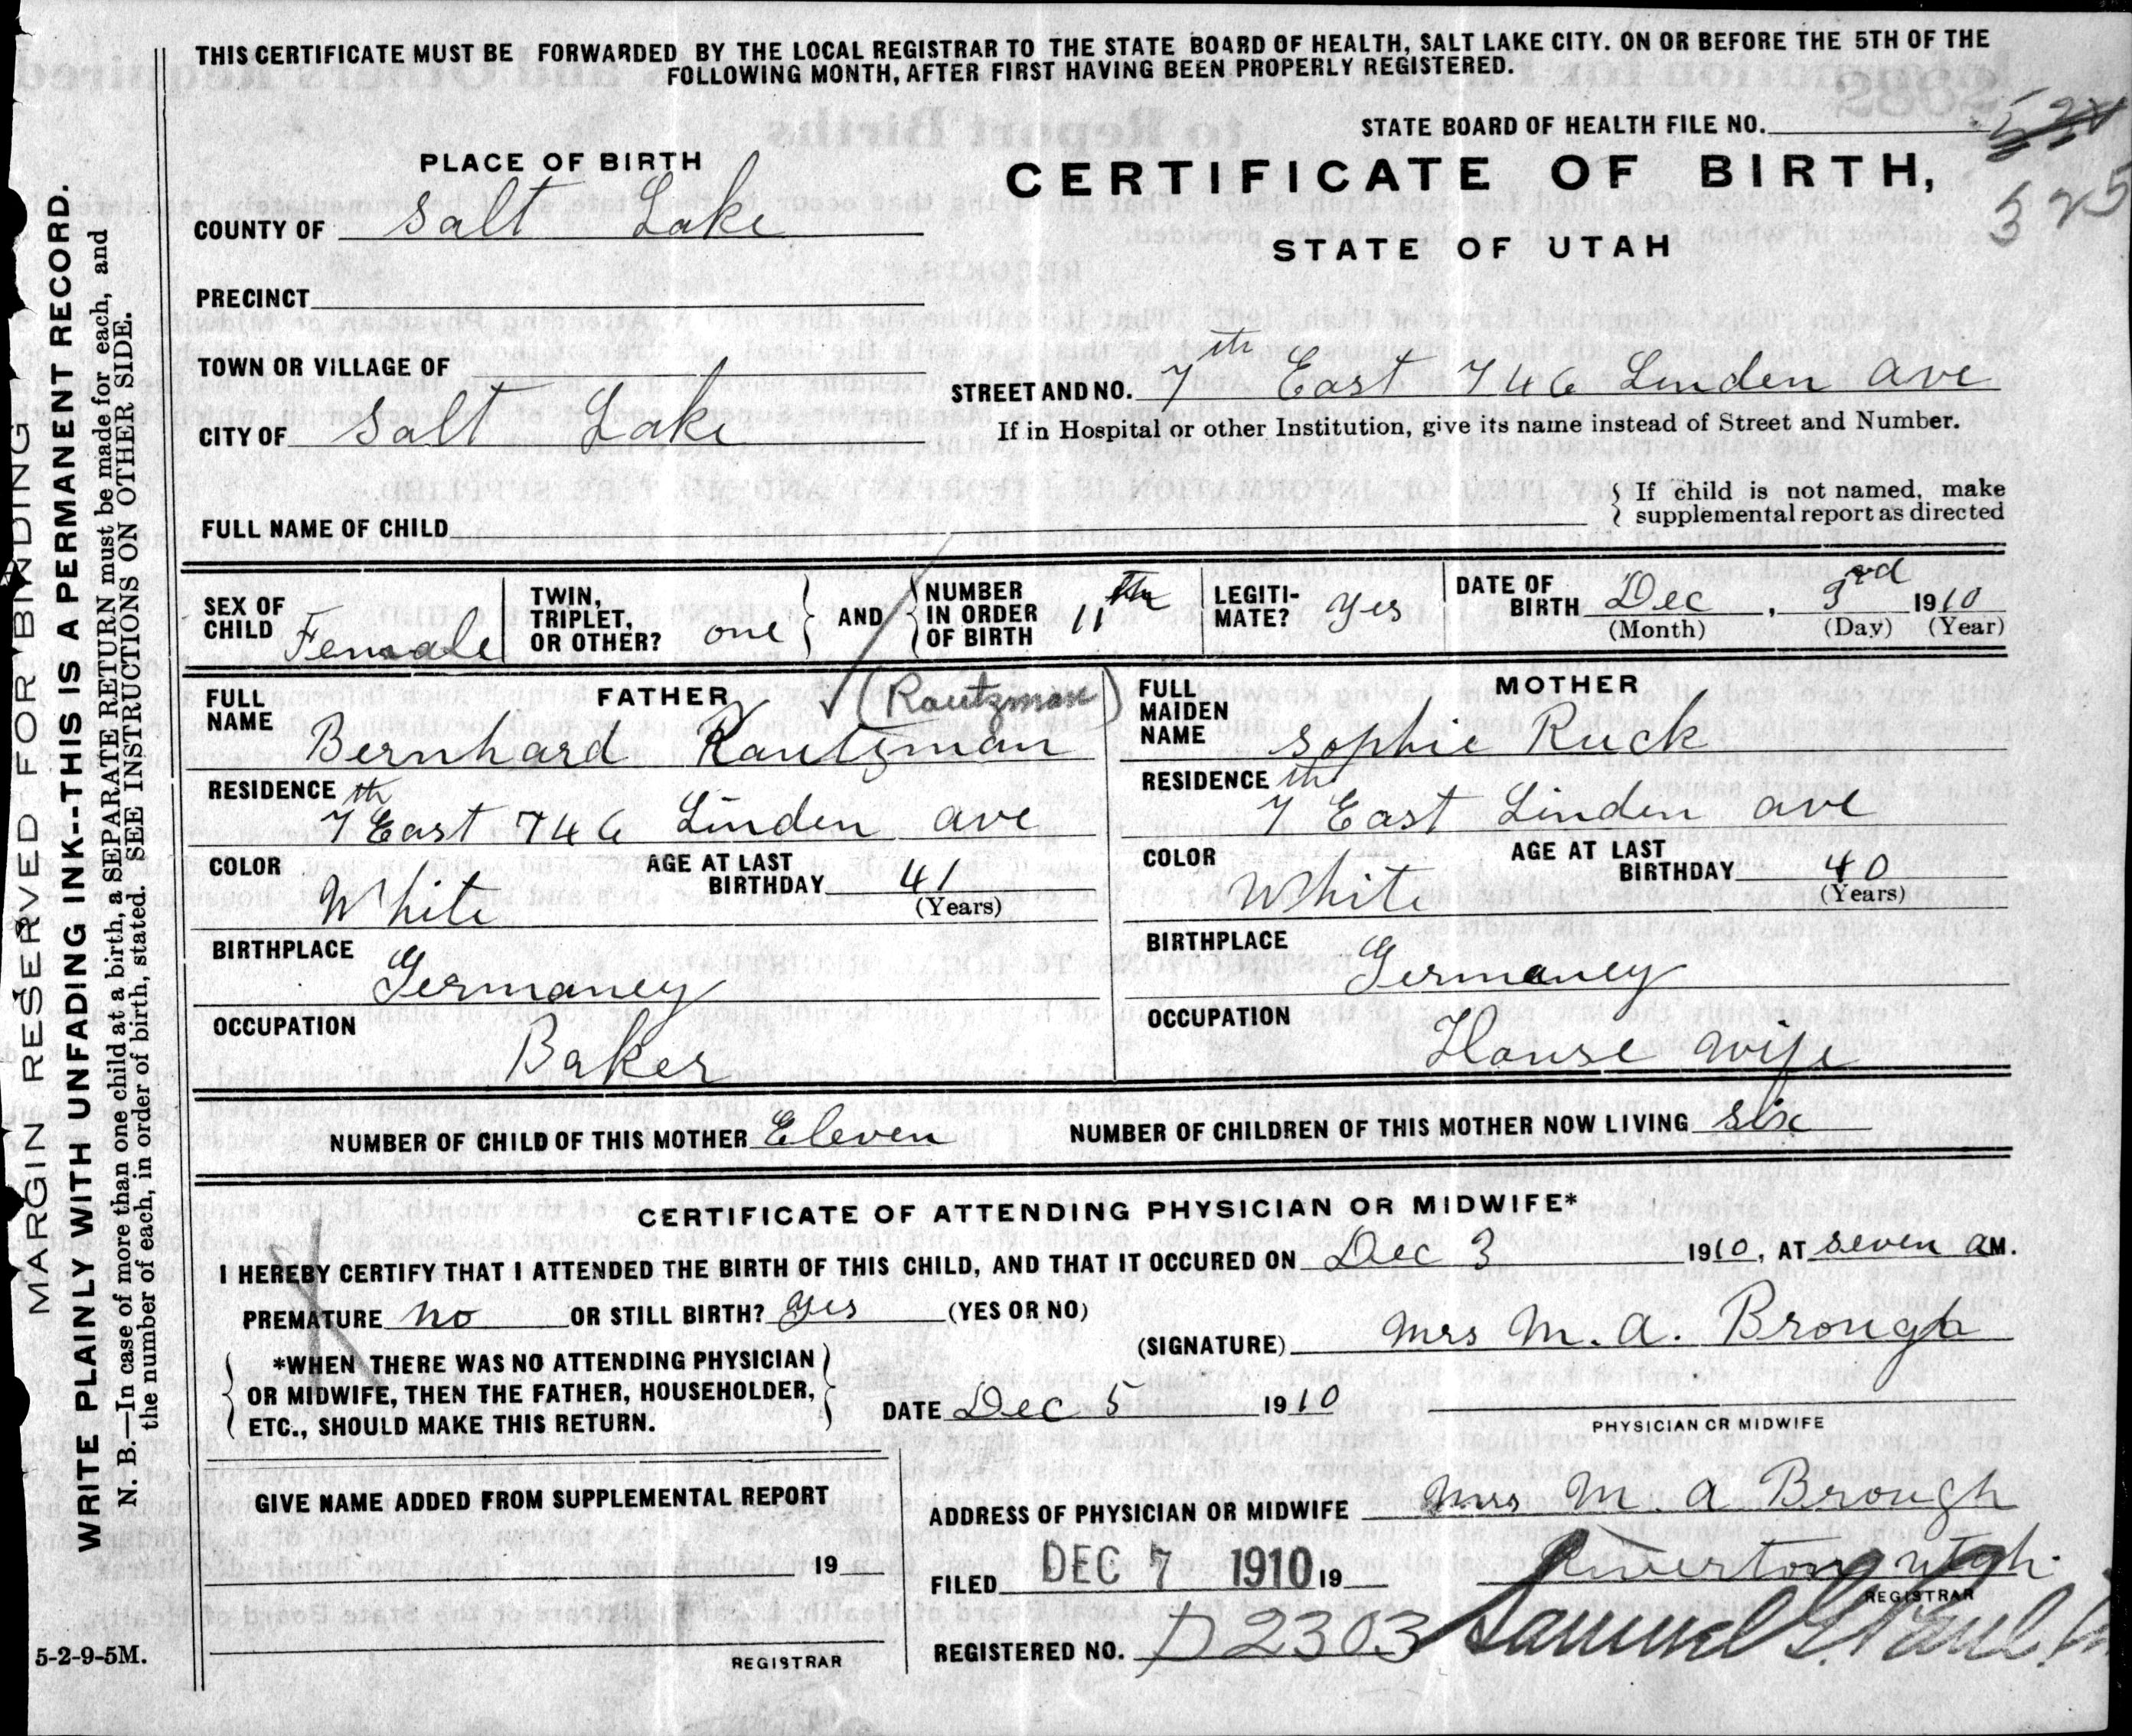 THIS CERTIFICATE MUST BE FORWARDED BY THE LOCAL REGISTRAR TO THE STATE BOARD OF HEALTH, SALT LAKE CITY. ON OR BEFORE THE 5TH OF THE
FOLLOWING MONTH, AFTER FIRST HAVING BEEN PROPERLY REGISTERED.
STATE BOARD OF HEALTH FILE NO.
525
PLACE OF BIRTH
CERTIFICATE OF BIRTH,
STATE OF UTAH
COUNTY OF Salt Lake
PRECINCT
TOWN OR VILLAGE OF
STREET AND NO. 7th East 746 Linden ave
CITY OF Salt Lake
If in Hospital or other Institution, give its name instead of Street and Number.
FULL NAME OF CHILD
If child is not named, make
supplemental report as directed
SEX OF CHILD Female
TWIN, TRIPLET, OR OTHER? one
AND NUMBER IN ORDER OF BIRTH 11th
LEGITI-MATE? yes
DATE OF BIRTH Dec, 3rd 1910
(Month) (Day) (Year)
FATHER
FULL NAME Bernhard Rautzman (Rautzman)
RESIDENCE 7th East 746 Linden ave
COLOR White
AGE AT LAST BIRTHDAY 41
(Years)
BIRTHPLACE Germaney
OCCUPATION Baker
MOTHER
FULL MAIDEN NAME Sophie Ruck
RESIDENCE 7th East Linden ave
COLOR White
AGE AT LAST BIRTHDAY 40
(Years)
BIRTHPLACE Germaney
OCCUPATION House wife
NUMBER OF CHILD OF THIS MOTHER Eleven
NUMBER OF CHILDREN OF THIS MOTHER NOW LIVING six
CERTIFICATE OF ATTENDING PHYSICIAN OR MIDWIFE*
I HEREBY CERTIFY THAT I ATTENDED THE BIRTH OF THIS CHILD, AND THAT IT OCCURED ON Dec 3 1910, AT seven aM.
PREMATURE no OR STILL BIRTH? yes (YES OR NO)
(SIGNATURE) Mrs M. a. Brough
*WHEN THERE WAS NO ATTENDING PHYSICIAN
OR MIDWIFE, THEN THE FATHER, HOUSEHOLDER,
ETC., SHOULD MAKE THIS RETURN.
DATE Dec 5 1910
PHYSICIAN OR MIDWIFE
GIVE NAME ADDED FROM SUPPLEMENTAL REPORT
19
REGISTRAR
ADDRESS OF PHYSICIAN OR MIDWIFE Mrs M. a Brough
Riverton Utah.
FILED DEC 7 1910 19
REGISTRAR
REGISTERED NO. D2303
Samuel G. Paul
5-2-9-5M.
MARGIN RESERVED FOR BINDING
WRITE PLAINLY WITH UNFADING INK--THIS IS A PERMANENT RECORD.
N. B.—In case of more than one child at a birth, a SEPARATE RETURN must be made for each, and
the number of each, in order of birth, stated. SEE INSTRUCTIONS ON OTHER SIDE.